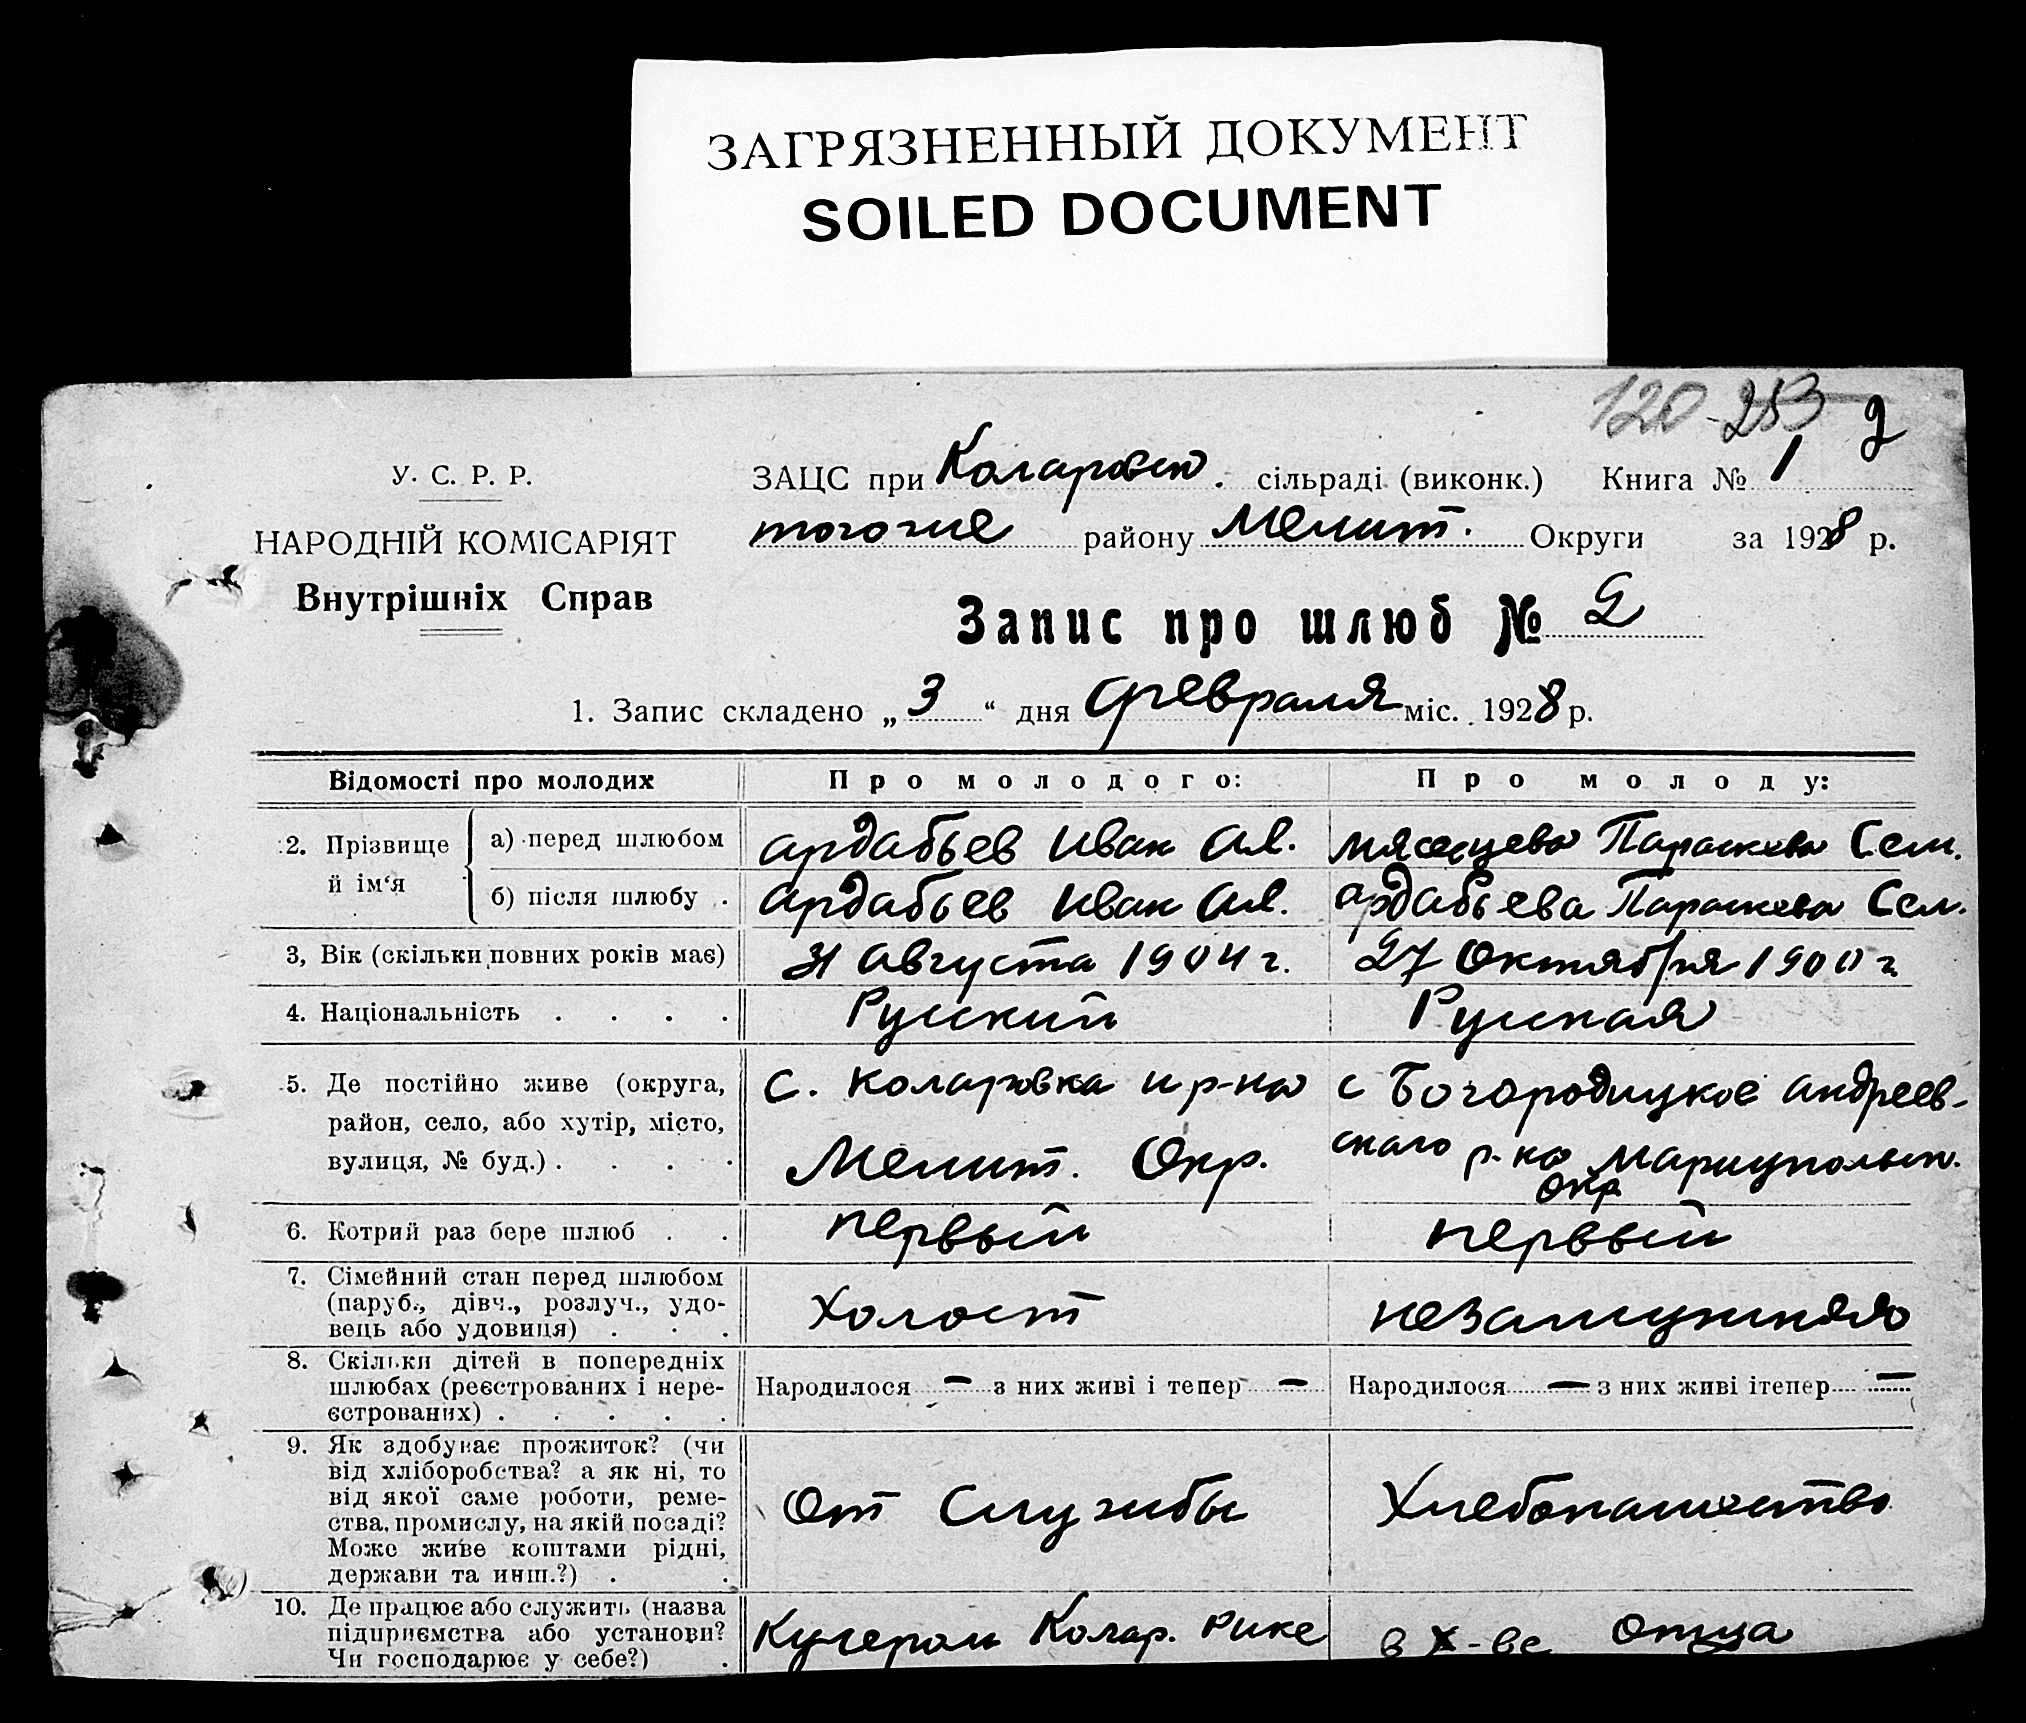 ЗАГРЯЗНЕННЫЙ ДОКУМЕНТ
SOILED DOCUMENT
120-253 2
У. С. Р. Р.
НАРОДНІЙ КОМІСАРІЯТ
Внутрішніх Справ
ЗАЦС при Коларовск. сільраді (виконк.) Книга № 1
того же району Мелит. Округи за 1928 р.
Запис про шлюб № 2
1. Запис складено „3“ дня февраля міс. 1928 р.
Відомості про молодих Про молодого: Про молоду:
2. Прізвище й ім‘я
а) перед шлюбом Ардабьев Иван Ал. Мясищева Параскева Сем.
б) після шлюбу . Ардабьев Иван Ал. Ардабьева Параскева Сем.
3, Вік (скільки повних років має) 31 Августа 1904 г. 27 Октября 1900 г.
4. Національність . . . . Русский Русская
5. Де постійно живе (округа, район, село, або хутір, місто, вулиця, № буд.) . . . .
с. Коларовка и р-на
Мелит. Окр.
с Богородицкое Андреев-
ского р-на Мариупольск.
Окр
6. Котрий раз бере шлюб . . первый первый
7. Сімейний стан перед шлюбом
(паруб., дівч., розлуч., удо-
вець або удовиця) . . . Холост незамужняя
8. Скільки дітей в попередніх
шлюбах (реєстрованих і нере-
єстрованих) . . . . .
Народилося — з них живі і тепер —
Народилося — з них живі ітепер —
9. Як здобуває прожиток? (чи
від хліборобства? а як ні, то
від якої саме роботи, реме-
ства, промислу, на якій посаді?
Може живе коштами рідні,
держави та инш.?) . .
От Службы Хлебопашество
10. Де працює або служить (назва
підприємства або установи?
Чи господарює у себе?) .
Кучером Колар. Рике в х-ве Отца